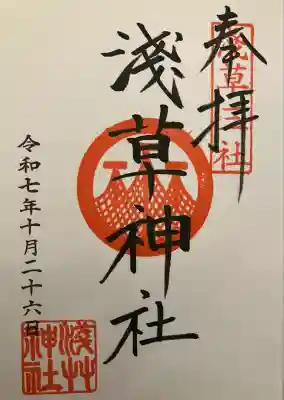 奉拝
淺草神社
淺草神社
令和七年十月二十六日
淺艸神社